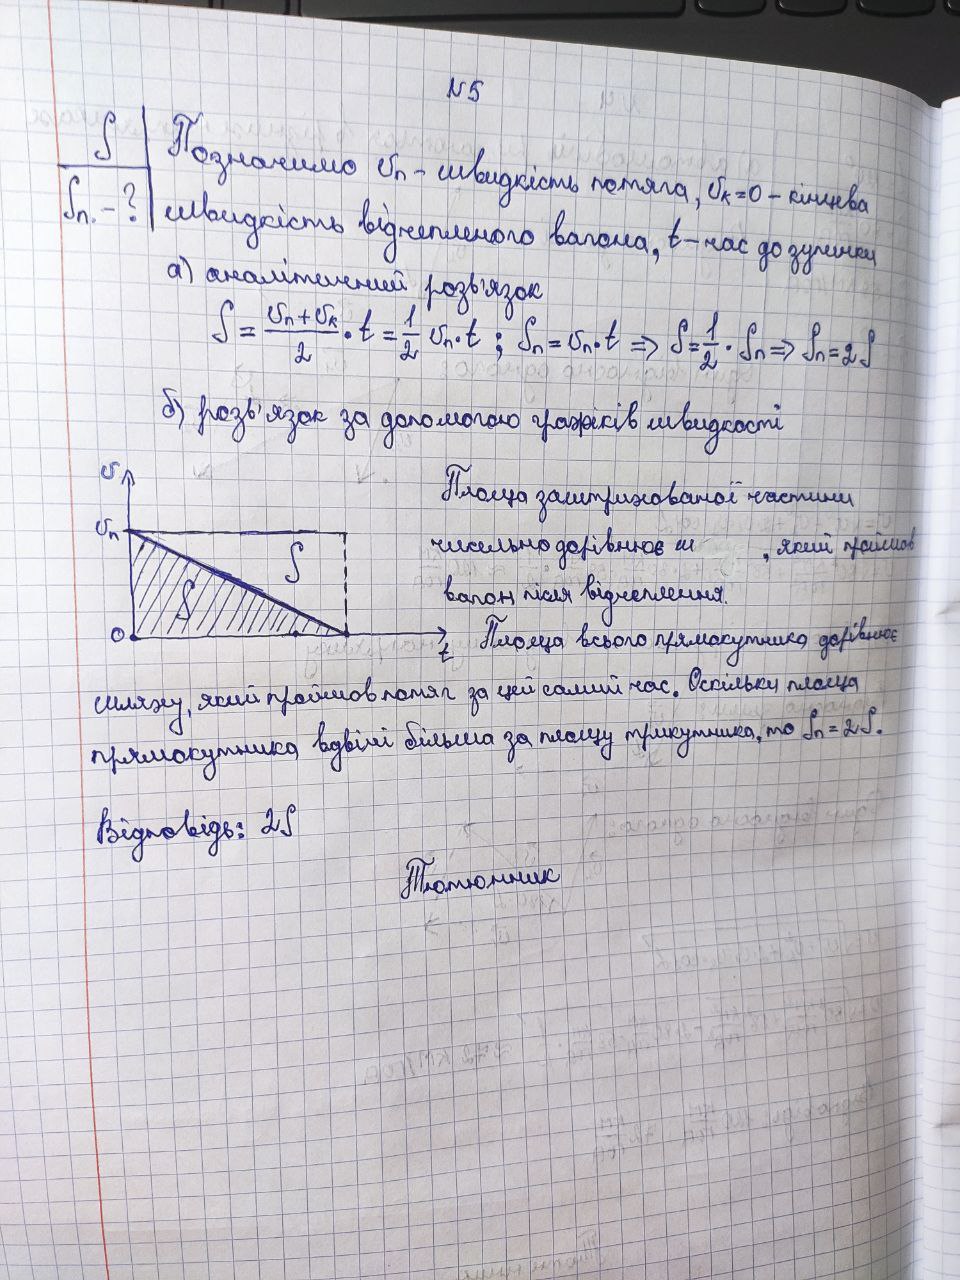 №5
S
Sп. - ?
Позначимо υп - швидкість потяга, υк = 0 - кінцева
швидкість відчепленого вагона, t - час до зупинки
а) аналітичний розв'язок
S = (υп + υк)/2 · t = 1/2 υп · t ; Sп = υп · t => S = 1/2 · Sп => Sп = 2S
б) розв'язок за допомогою графіків швидкості
υ
υп
S
S
0
t
Площа заштрихованої частини
чисельно дорівнює ш , який пройшов
вагон після відчеплення.
Площа всього прямокутника дорівнює
шляху, який пройшов потяг за цей самий час. Оскільки площа
прямокутника вдвічі більша за площу трикутника, то Sп = 2S.
Відповідь: 2S
Тютюнник